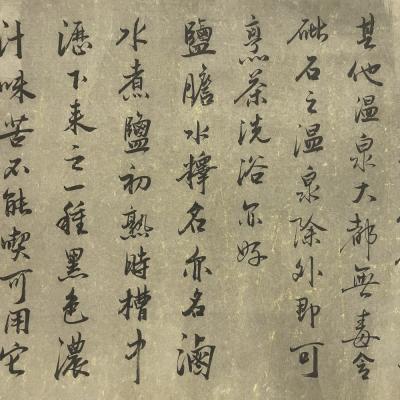 其他温泉大都無毒含
砒石之温泉除外即可
烹茶洗浴亦好
鹽膽水擇名亦名滷
水煮鹽初熟時槽中
瀝下来之一種黑色濃
汁味苦不能喫可用它